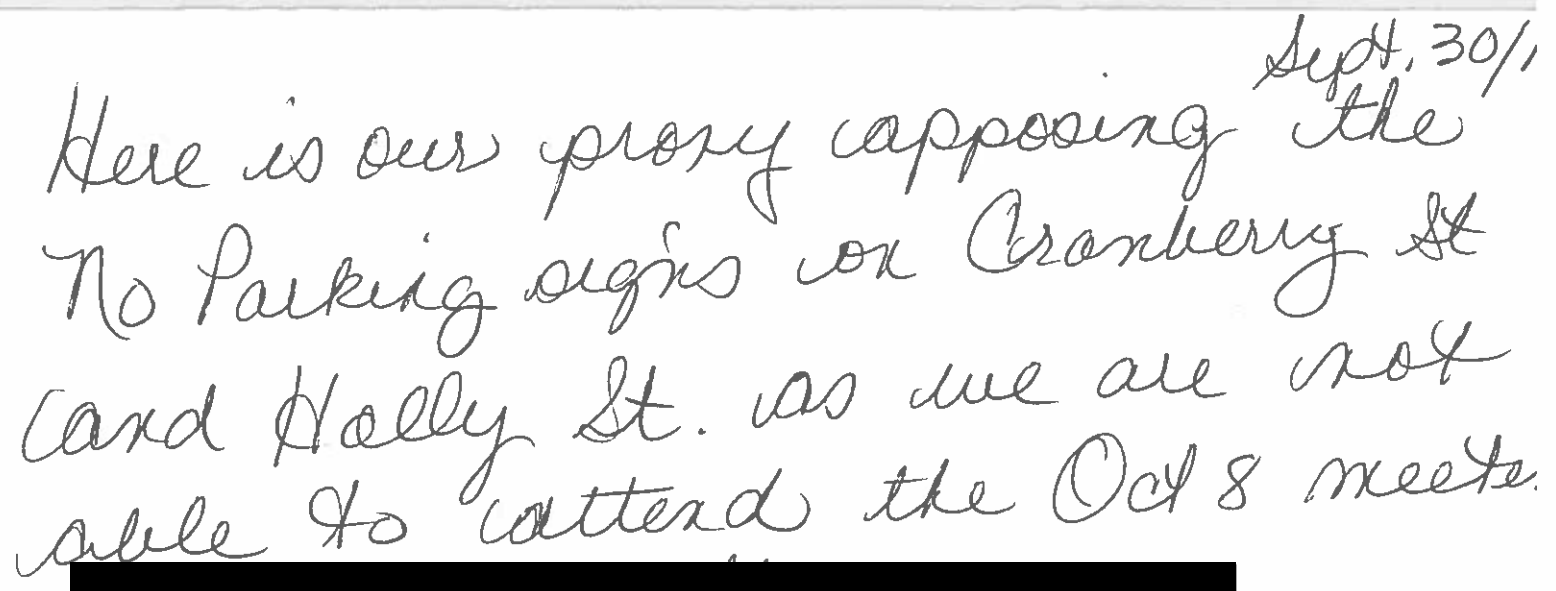 Sept. 30/1
Here is our proxy apposing the
No Parking signs on Cranberry St
and Holly St. as we are not
able to attend the Oct 8 meete